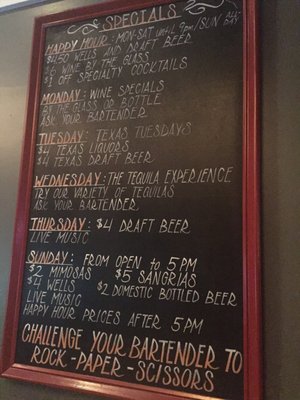 SPECIALS
HAPPY HOUR: MON-SAT until 9PM/SUN ALL DAY
$4.50 WELLS AND DRAFT BEER
$6 WINE BY THE GLASS
$1 OFF SPECIALTY COCKTAILS
MONDAY: WINE SPECIALS
BY THE GLASS OR BOTTLE
ASK YOUR BARTENDER
TUESDAY: TEXAS TUESDAYS
$4 TEXAS LIQUORS
$4 TEXAS DRAFT BEER
WEDNESDAY: THE TEQUILA EXPERIENCE
TRY OUR VARIETY OF TEQUILAS
ASK YOUR BARTENDER
THURSDAY: $4 DRAFT BEER
LIVE MUSIC
SUNDAY: FROM OPEN to 5 PM
$2 MIMOSAS $5 SANGRIAS
$4 WELLS $2 DOMESTIC BOTTLED BEER
LIVE MUSIC
HAPPY HOUR PRICES AFTER 5PM
CHALLENGE YOUR BARTENDER TO
ROCK-PAPER-SCISSORS